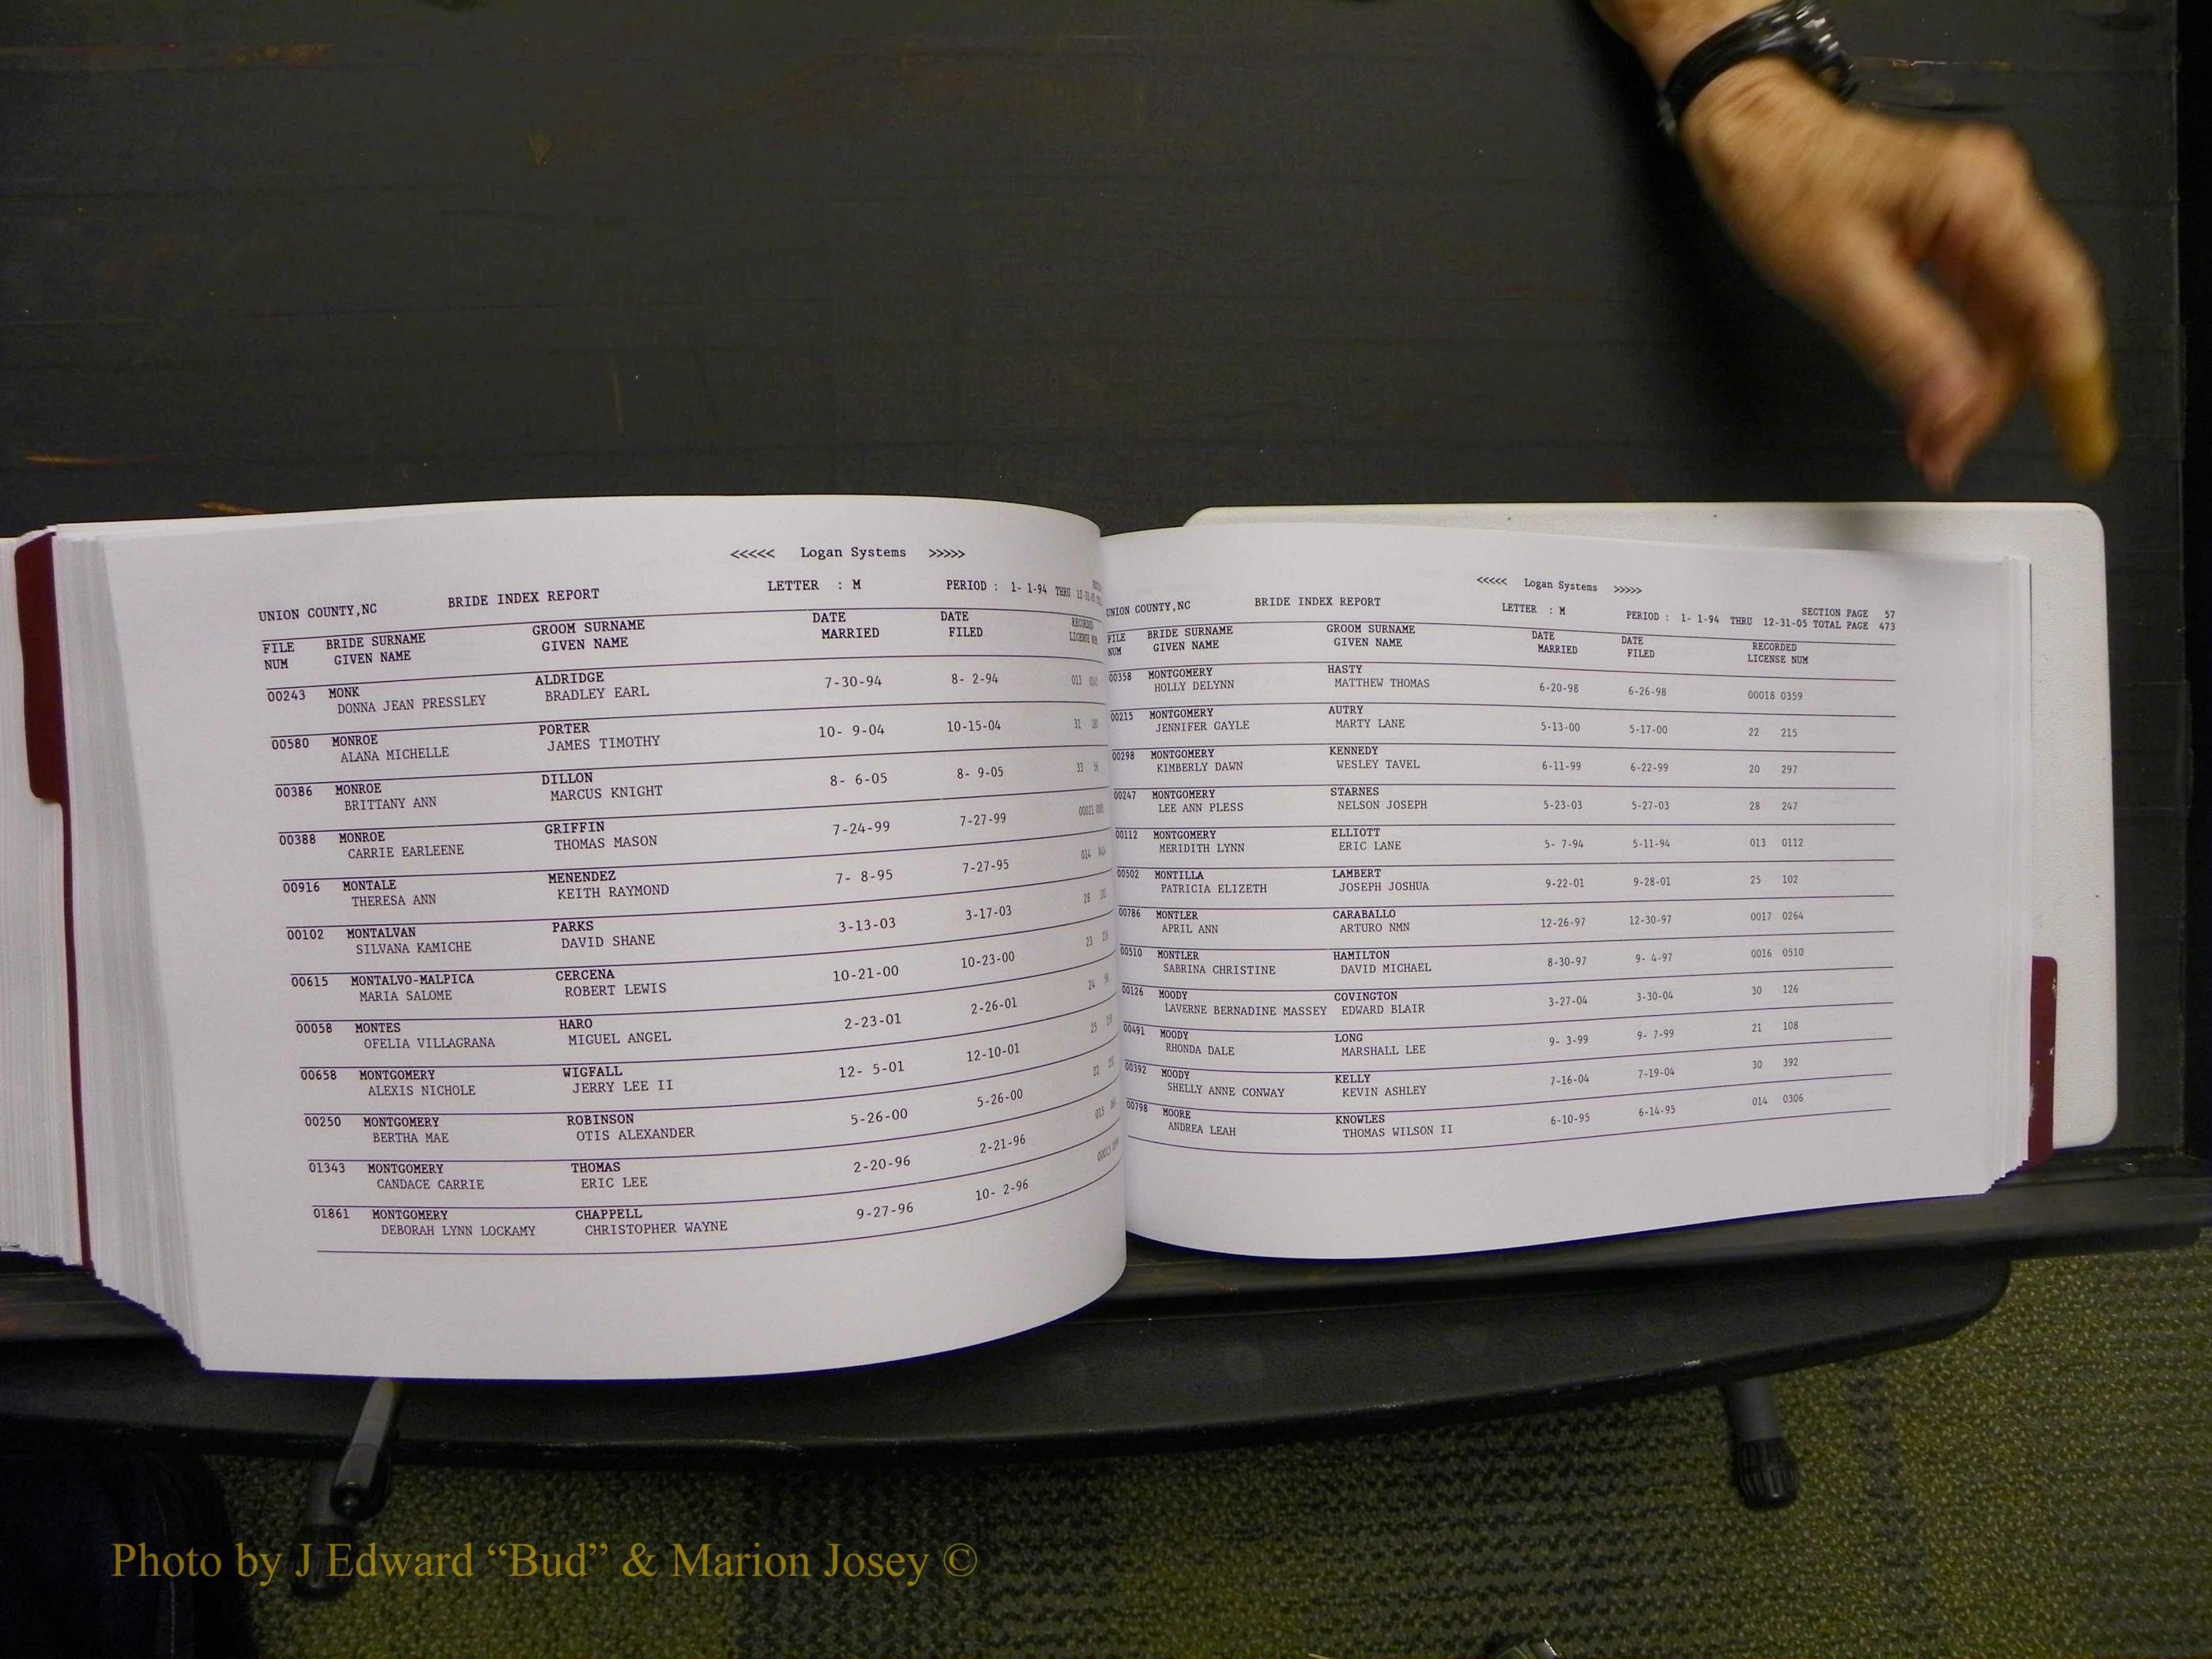 <<<<< Logan Systems >>>>>
UNION COUNTY,NC BRIDE INDEX REPORT LETTER : M PERIOD : 1- 1-94 THRU
FILE BRIDE SURNAME GROOM SURNAME DATE DATE RECORDED
NUM GIVEN NAME GIVEN NAME MARRIED FILED LICENSE NUM
00243 MONK ALDRIDGE 7-30-94 8- 2-94 013
DONNA JEAN PRESSLEY BRADLEY EARL
00580 MONROE PORTER 10- 9-04 10-15-04 31
ALANA MICHELLE JAMES TIMOTHY
00386 MONROE DILLON 8- 6-05 8- 9-05 33
BRITTANY ANN MARCUS KNIGHT
00388 MONROE GRIFFIN 7-24-99 7-27-99 00021
CARRIE EARLEENE THOMAS MASON
00916 MONTALE MENENDEZ 7- 8-95 7-27-95 014
THERESA ANN KEITH RAYMOND
00102 MONTALVAN PARKS 3-13-03 3-17-03 28
SILVANA KAMICHE DAVID SHANE
00615 MONTALVO-MALPICA CERCENA 10-21-00 10-23-00 23
MARIA SALOME ROBERT LEWIS
00058 MONTES HARO 2-23-01 2-26-01 24
OFELIA VILLAGRANA MIGUEL ANGEL
00658 MONTGOMERY WIGFALL 12- 5-01 12-10-01 25
ALEXIS NICHOLE JERRY LEE II
00250 MONTGOMERY ROBINSON 5-26-00 5-26-00 22
BERTHA MAE OTIS ALEXANDER
01343 MONTGOMERY THOMAS 2-20-96 2-21-96 015
CANDACE CARRIE ERIC LEE
01861 MONTGOMERY CHAPPELL 9-27-96 10- 2-96
DEBORAH LYNN LOCKAMY CHRISTOPHER WAYNE
<<<<< Logan Systems >>>>>
SECTION PAGE 57
UNION COUNTY,NC BRIDE INDEX REPORT LETTER : M PERIOD : 1- 1-94 THRU 12-31-05 TOTAL PAGE 473
FILE BRIDE SURNAME GROOM SURNAME DATE DATE RECORDED
NUM GIVEN NAME GIVEN NAME MARRIED FILED LICENSE NUM
00358 MONTGOMERY HASTY 6-20-98 6-26-98 00018 0359
HOLLY DELYNN MATTHEW THOMAS
00215 MONTGOMERY AUTRY 5-13-00 5-17-00 22 215
JENNIFER GAYLE MARTY LANE
00298 MONTGOMERY KENNEDY 6-11-99 6-22-99 20 297
KIMBERLY DAWN WESLEY TAVEL
00247 MONTGOMERY STARNES 5-23-03 5-27-03 28 247
LEE ANN PLESS NELSON JOSEPH
00112 MONTGOMERY ELLIOTT 5- 7-94 5-11-94 013 0112
MERIDITH LYNN ERIC LANE
00502 MONTILLA LAMBERT 9-22-01 9-28-01 25 102
PATRICIA ELIZETH JOSEPH JOSHUA
00786 MONTLER CARABALLO 12-26-97 12-30-97 0017 0264
APRIL ANN ARTURO NMN
00510 MONTLER HAMILTON 8-30-97 9- 4-97 0016 0510
SABRINA CHRISTINE DAVID MICHAEL
00126 MOODY COVINGTON 3-27-04 3-30-04 30 126
LAVERNE BERNADINE MASSEY EDWARD BLAIR
00491 MOODY LONG 9- 3-99 9- 7-99 21 108
RHONDA DALE MARSHALL LEE
00392 MOODY KELLY 7-16-04 7-19-04 30 392
SHELLY ANNE CONWAY KEVIN ASHLEY
00798 MOORE KNOWLES 6-10-95 6-14-95 014 0306
ANDREA LEAH THOMAS WILSON II
Photo by J Edward “Bud” & Marion Josey ©